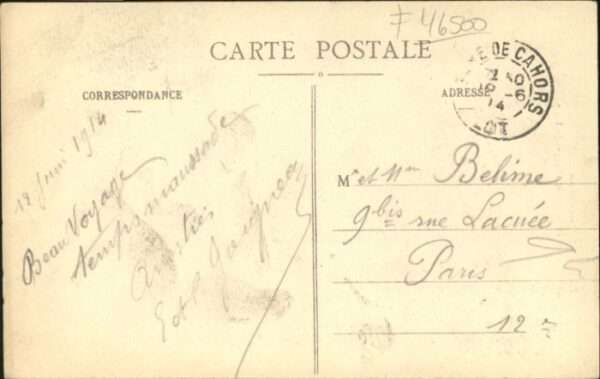 F 46500
CARTE POSTALE
CORRESPONDANCE
ADRESSE
DE CAHORS
LOT
12 Juin 1914
Beau Voyage
temps maussade
Amitiés
M^r et Mme Belime
9 bis rue Lacuée
Paris
12 e